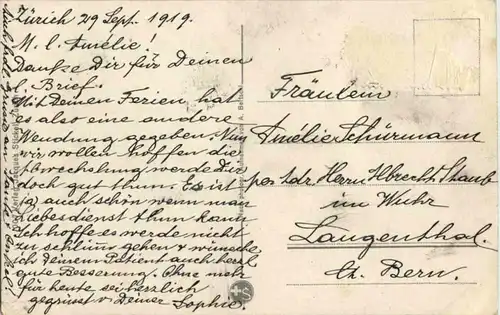 Zürich 29 Sept. 1919.
M. l. Amélie!
Danke Dir für Deinen
l. Brief.
Mit Deinen Ferien, hat
es also eine andere
Wendung gegeben. Nun
wir wollen hoffen die
Abwechslung werde Dir
doch gut thun. Es ist
ja auch schön wenn man
Liebesdienst thun kann.
Ich hoffe es werde nicht
zu schlimm gehen & wünsche
ich Deinem Patient auch herzl.
gute Besserung. Ohne mehr
für heute sei herzlich
gegrüsst v. Deiner Sophie.
Fräulein
Amélie Schürmann
per Adr. Herrn Albrecht Staub
im Wuhr
Langenthal.
Ct. Bern.